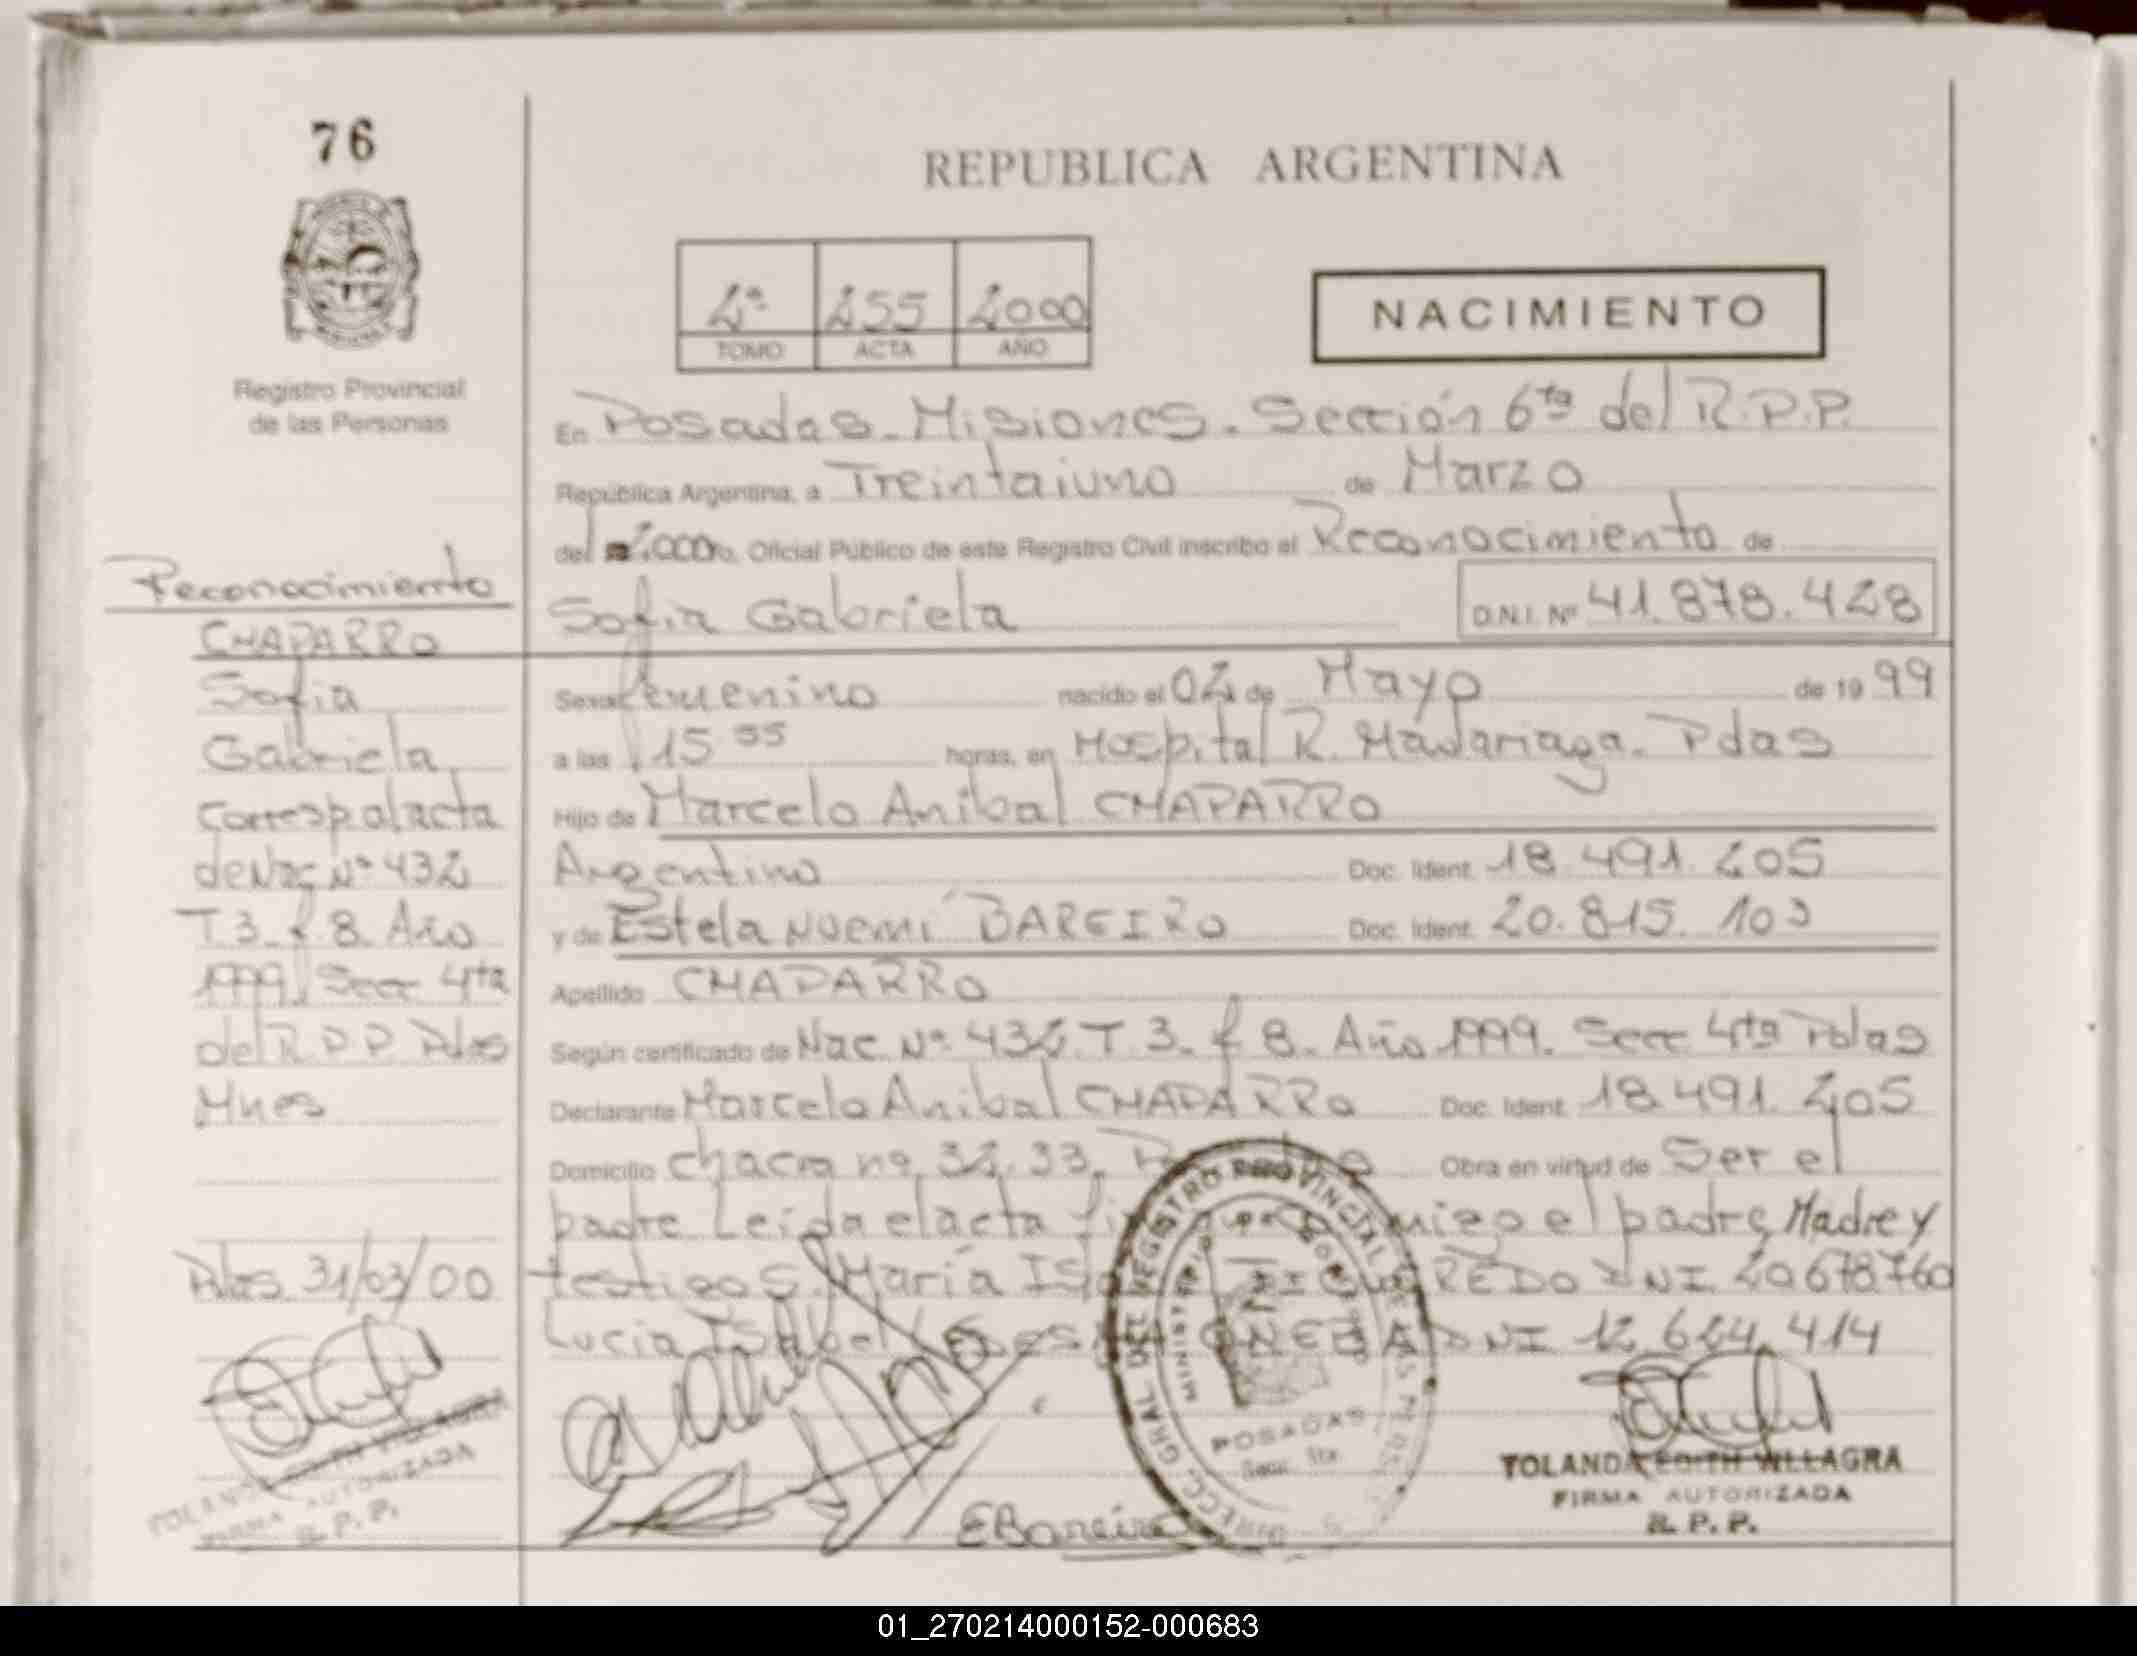 76
REPUBLICA ARGENTINA
2ª 255 2000
TOMO ACTA AÑO
NACIMIENTO
Registro Provincial
de las Personas
En Posadas. Misiones. Sección 6ta del R.P.P.
República Argentina, a Treintaiuno de Marzo
del 2.000 Oficial Público de este Registro Civil inscribo el Reconocimiento de
Sofia Gabriela D.N.I. Nº 41.878.428
Sexo femenino nacido el 02 de Mayo de 19 99
a las 15 55 horas, en Hospital R. Madariaga. Pdas
Hijo de Marcelo Anibal CHAPARRO
Argentino Doc. Ident. 18.491.205
y de Estela Noemí BAREIRO Doc. Ident. 20.815.103
Apellido CHAPARRO
Según certificado de Nac Nº 432. T 3. f 8. Año 1999. Secc 4ta Pdas
Declarante Marcelo Anibal CHAPARRO Doc. Ident. 18.491.205
Domicilio chacra nº 32.33. Obra en virtud de Ser el
padre Leída el acta el padre, Madre y
testigos. María DNI 20678760
Lucia Isabel DNI 12.624.414
Reconocimiento
CHAPARRO
Sofia
Gabriela
Corresp al acta
de Nac Nº 432
T 3. f 8. Año
1999 Secc 4ta
del R.P.P. Pdas
Mnes
Pdas. 31/03/00
YOLANDA EDITH VILLAGRA
FIRMA AUTORIZADA
R. P. P.
EBareiro
DIRECC. GRAL DEL REGISTRO PROVINCIAL DE LAS
POSADAS
YOLANDA EDITH VILLAGRA
FIRMA AUTORIZADA
R. P. P.
01_270214000152-000683